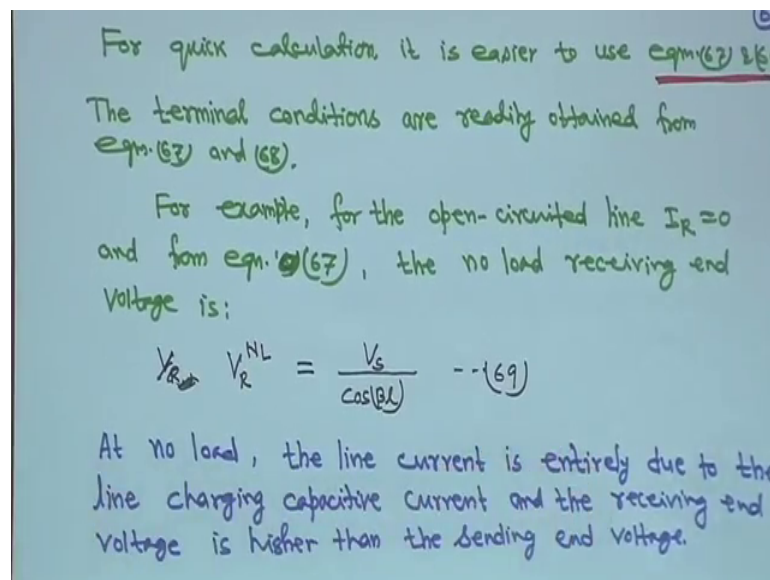 For quick calculation, it is easier to use eqn.(67) &
The terminal conditions are readily obtained from
eqn.(67) and (68).
For example, for the open-circuited line I_R = 0
and from eqn. (67), the no load receiving end
voltage is:
V_R^NL = V_s / cos(βl) --- (69)
At no load, the line current is entirely due to the
line charging capacitive current and the receiving end
voltage is higher than the sending end voltage.